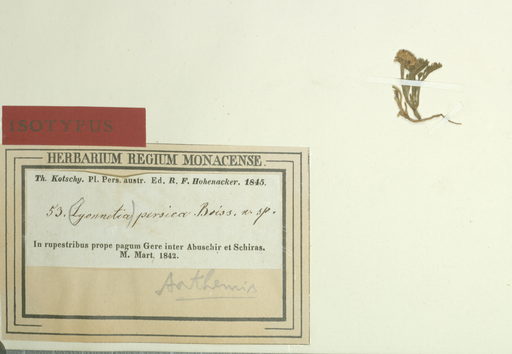 ISOTYPUS
HERBARIUM REGIUM MONACENSE.
Th. Kotschy. Pl. Pers. austr. Ed. R. F. Hohenacker. 1845.
53. (Lyonnetia) persica Boiss. n. sp.
In rupestribus prope pagum Gere inter Abuschir et Schiras.
M. Mart. 1842.
Anthemis